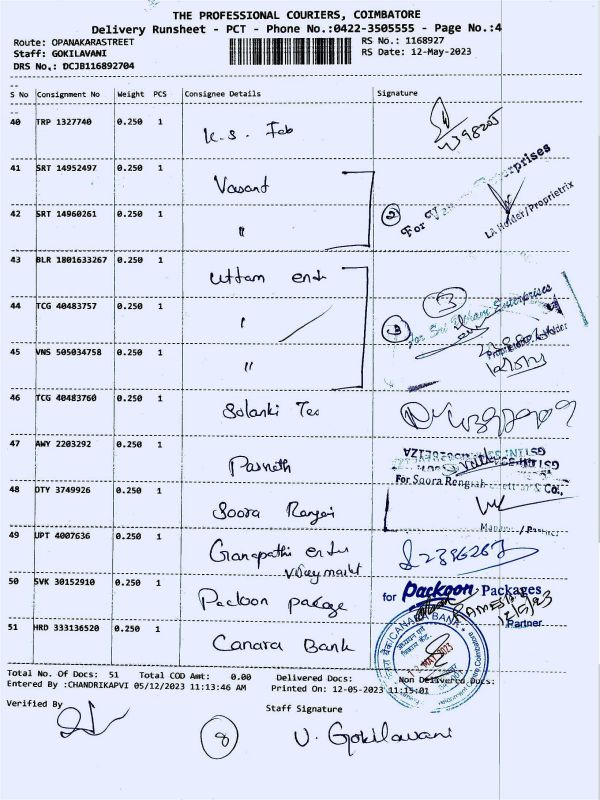 THE PROFESSIONAL COURIERS, COIMBATORE
Delivery Runsheet - PCT - Phone No.:0422-3505555 - Page No.:4
Route: OPANAKARASTREET RS No.: 1168927
Staff: GOKILAVANI RS Date: 12-May-2023
DRS No.: DCJB116892704
S No Consignment No Weight PCS Consignee Details Signature
40 TRP 1327740 0.250 1 K.S. Fab
41 SRT 14952497 0.250 1 Vasant
42 SRT 14960261 0.250 1 "
2 For Enterprises
LA Holder/Proprietrix
43 BLR 1801633267 0.250 1 Uttam
44 TCG 40483757 0.250 1
3 3 for Sri Enterprises
45 VNS 505034758 0.250 1 "
46 TCG 40483760 0.250 1 Solanki Tex
47 AWY 2203292 0.250 1 Parnath
For Soora & Co.,
48 DTY 3749926 0.250 1 Soora
Partner
49 UPT 4007636 0.250 1 Ganapathi
50 SVK 30152910 0.250 1 Packoon package
for Packoon Packages
RAMESH
12/5/23
Partner
51 HRD 333136520 0.250 1 Canara Bank
CANARA BANK
12 MAY 2023
Total No. Of Docs: 51 Total COD Amt: 0.00 Delivered Docs: Non Delivered Docs:
Entered By :CHANDRIKAPVI 05/12/2023 11:13:46 AM Printed On: 12-05-2023 11:15:01
Verified By Staff Signature
8 V. Gokilavani